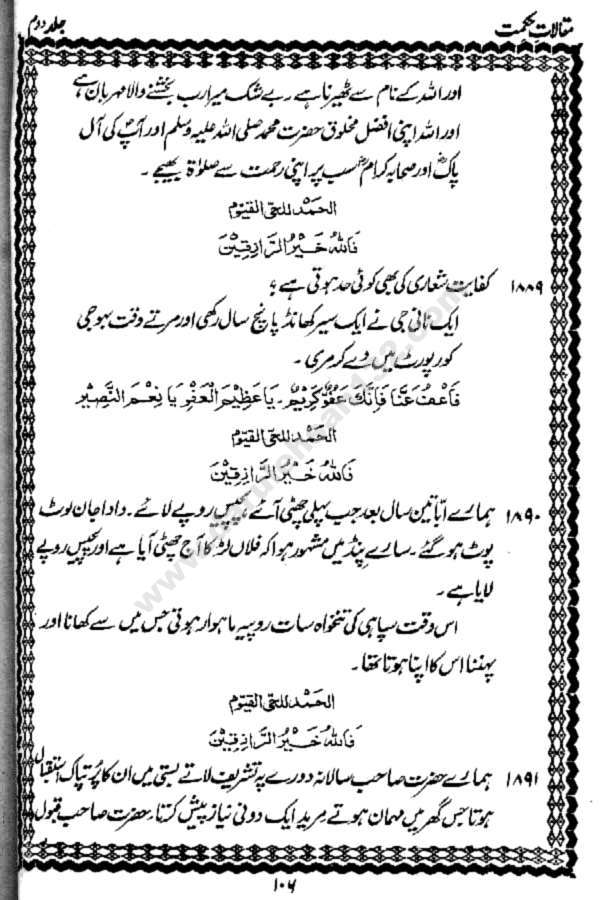 مقالاتِ حکمت
جلد دوم
اور اللہ کے نام سے ٹھیرنا ہے ۔ بے شک میرا رب بخشنے والا مہربان ہے
اور اللہ اپنی افضل مخلوق حضرت محمد صلی اللہ علیہ وسلم اور آپؐ کی آل
پاکؓ اور صحابہ کرامؓ سب پر اپنی رحمت سے صلوٰۃ بھیجے ۔
الحمد للحی القیوم
فَاللّٰهُ خَيْرُ الرَّازِقِيْنَ
۱۸۸۹ کفایت شعاری کی بھی کوئی حد ہوتی ہے ؛
ایک نانی جی نے ایک سیر کھانڈ پانچ سال رکھی اور مرتے وقت بہو جی
کو رپورٹ میں دے کر مری ۔
فَاعْفُ عَنَّا فَاِنَّكَ عَفُوٌّ كَرِيْمٌ ۔ يَا عَظِيْمَ الْعَفْوِ يَا نِعْمَ النَّصِيْر
الحمد للحی القیوم
فَاللّٰهُ خَيْرُ الرَّازِقِيْنَ
۱۸۹۰ ہمارے ابّا تین سال بعد جب پہلی چھٹی آئے پچیس روپے لائے ۔ دادا جان لوٹ
پوٹ ہو گئے ۔ سارے پنڈ میں مشہور ہوا کہ فلاں لڑکا آج چھٹی آیا ہے اور پچیس روپے
لایا ہے ۔
اس وقت سپاہی کی تنخواہ سات روپیہ ماہوار ہوتی جس میں سے کھانا اور
پہننا اس کا اپنا ہوتا تھا ۔
الحمد للحی القیوم
فَاللّٰهُ خَيْرُ الرَّازِقِيْنَ
۱۸۹۱ ہمارے حضرت صاحب سالانہ دورے پہ تشریف لاتے بستی میں ان کا پُرتپاک استقبال
ہوتا جس گھر میں مہمان ہوتے مرید ایک دونی نیاز پیش کرتا ، حضرت صاحب قبول
۱۰۶